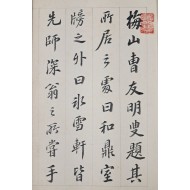 梅山曹友明叟題其
所居之處曰和鼎室
牓之外曰氷雪軒皆
先師深翁之所嘗手